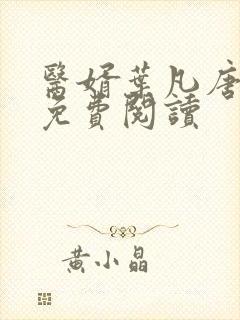 醫婿葉凡唐
免費閱讀
黃小晶